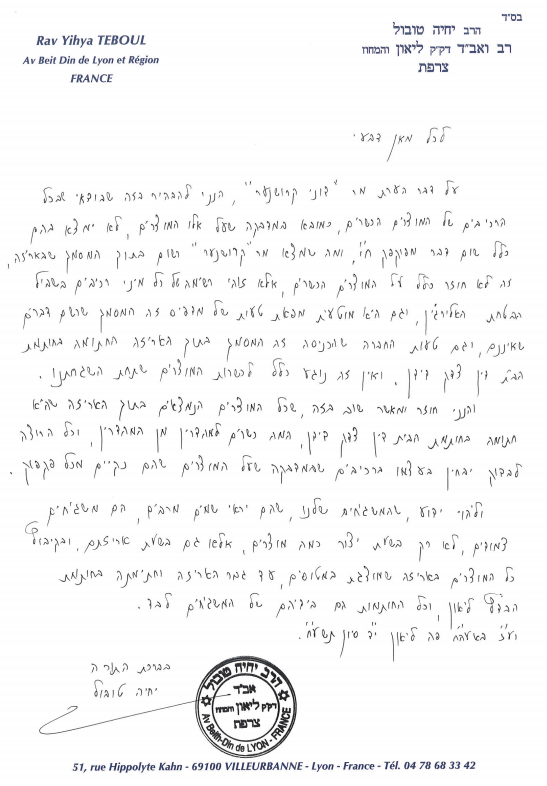 בס"ד
הרב יחיה טובול
רב ואב"ד דק"ק ליאון והמחוז
צרפת
Rav Yihya TEBOUL
Av Beit Din de Lyon et Région
FRANCE
לכל מאן דבעי
על דבר הערת מר "דוני קרושנער", הנני להבהיר בזה שבודאי שבכל
הרכיבים של המוצרים הכשרים, כמובא במדבקה שעל אלו המוצרים, לא ימצא בהם
כלל שום דבר מפוקפק ח"ו, ומה שמצא מר "קרושנער" רשום בתוך המסמך שבאריזה,
זה לא חוזר כלל על המוצרים הכשרים, אלא זוהי רשימה של כל מיני רכיבים בשביל
הבטחת האלירגין, וגם היא מוטעית מפאת טעות של מדפיס זה המסמך שרשם דברים
שאינם, וגם טעות החברה שהכניסה זה המסמך בתוך האריזה החתומה בחותמת
הבית דין צדק דידן. ואין זה נוגע כלל לכשרות המוצרים שתחת השגחתנו.
והנני חוזר ומאשר שוב בזה, שכל המוצרים הנמצאים בתוך האריזה שהיא
חתומה בחותמת הבית דין צדק דידן, המה כשרים למהדרין מן המהדרין, וכל הרוצה
לבדוק יבחין בעצמו ברכיבים שבמדבקה שעל המוצרים שהם נקיים מכל פקפוק.
ולהוי ידוע, שהמשגיחים שלנו, שהם יראי שמים מרבים, הם משגיחים
צמודים, לא רק בשעת יצור כמה מוצרים, אלא גם בשעת אריזתם, ובקיבול
כל המוצרים באריזה שמוצגת במטוסים, עד גמר האריזה וחתימתה בחותמת
הבד"ץ ליאון, וכל החותמות גם בידיהם של המשגיחים לבד.
ועז"ב באעה"ח פה ליאון י"ד סיון תשע"ח.
בברכת התורה
יחיה טובול
הרב יחיה טובול
אב"ד
דק"ק ליאון והמחוז
צרפת
Av Beith-Din de LYON - FRANCE
51, rue Hippolyte Kahn - 69100 VILLEURBANNE - Lyon - France - Tél. 04 78 68 33 42